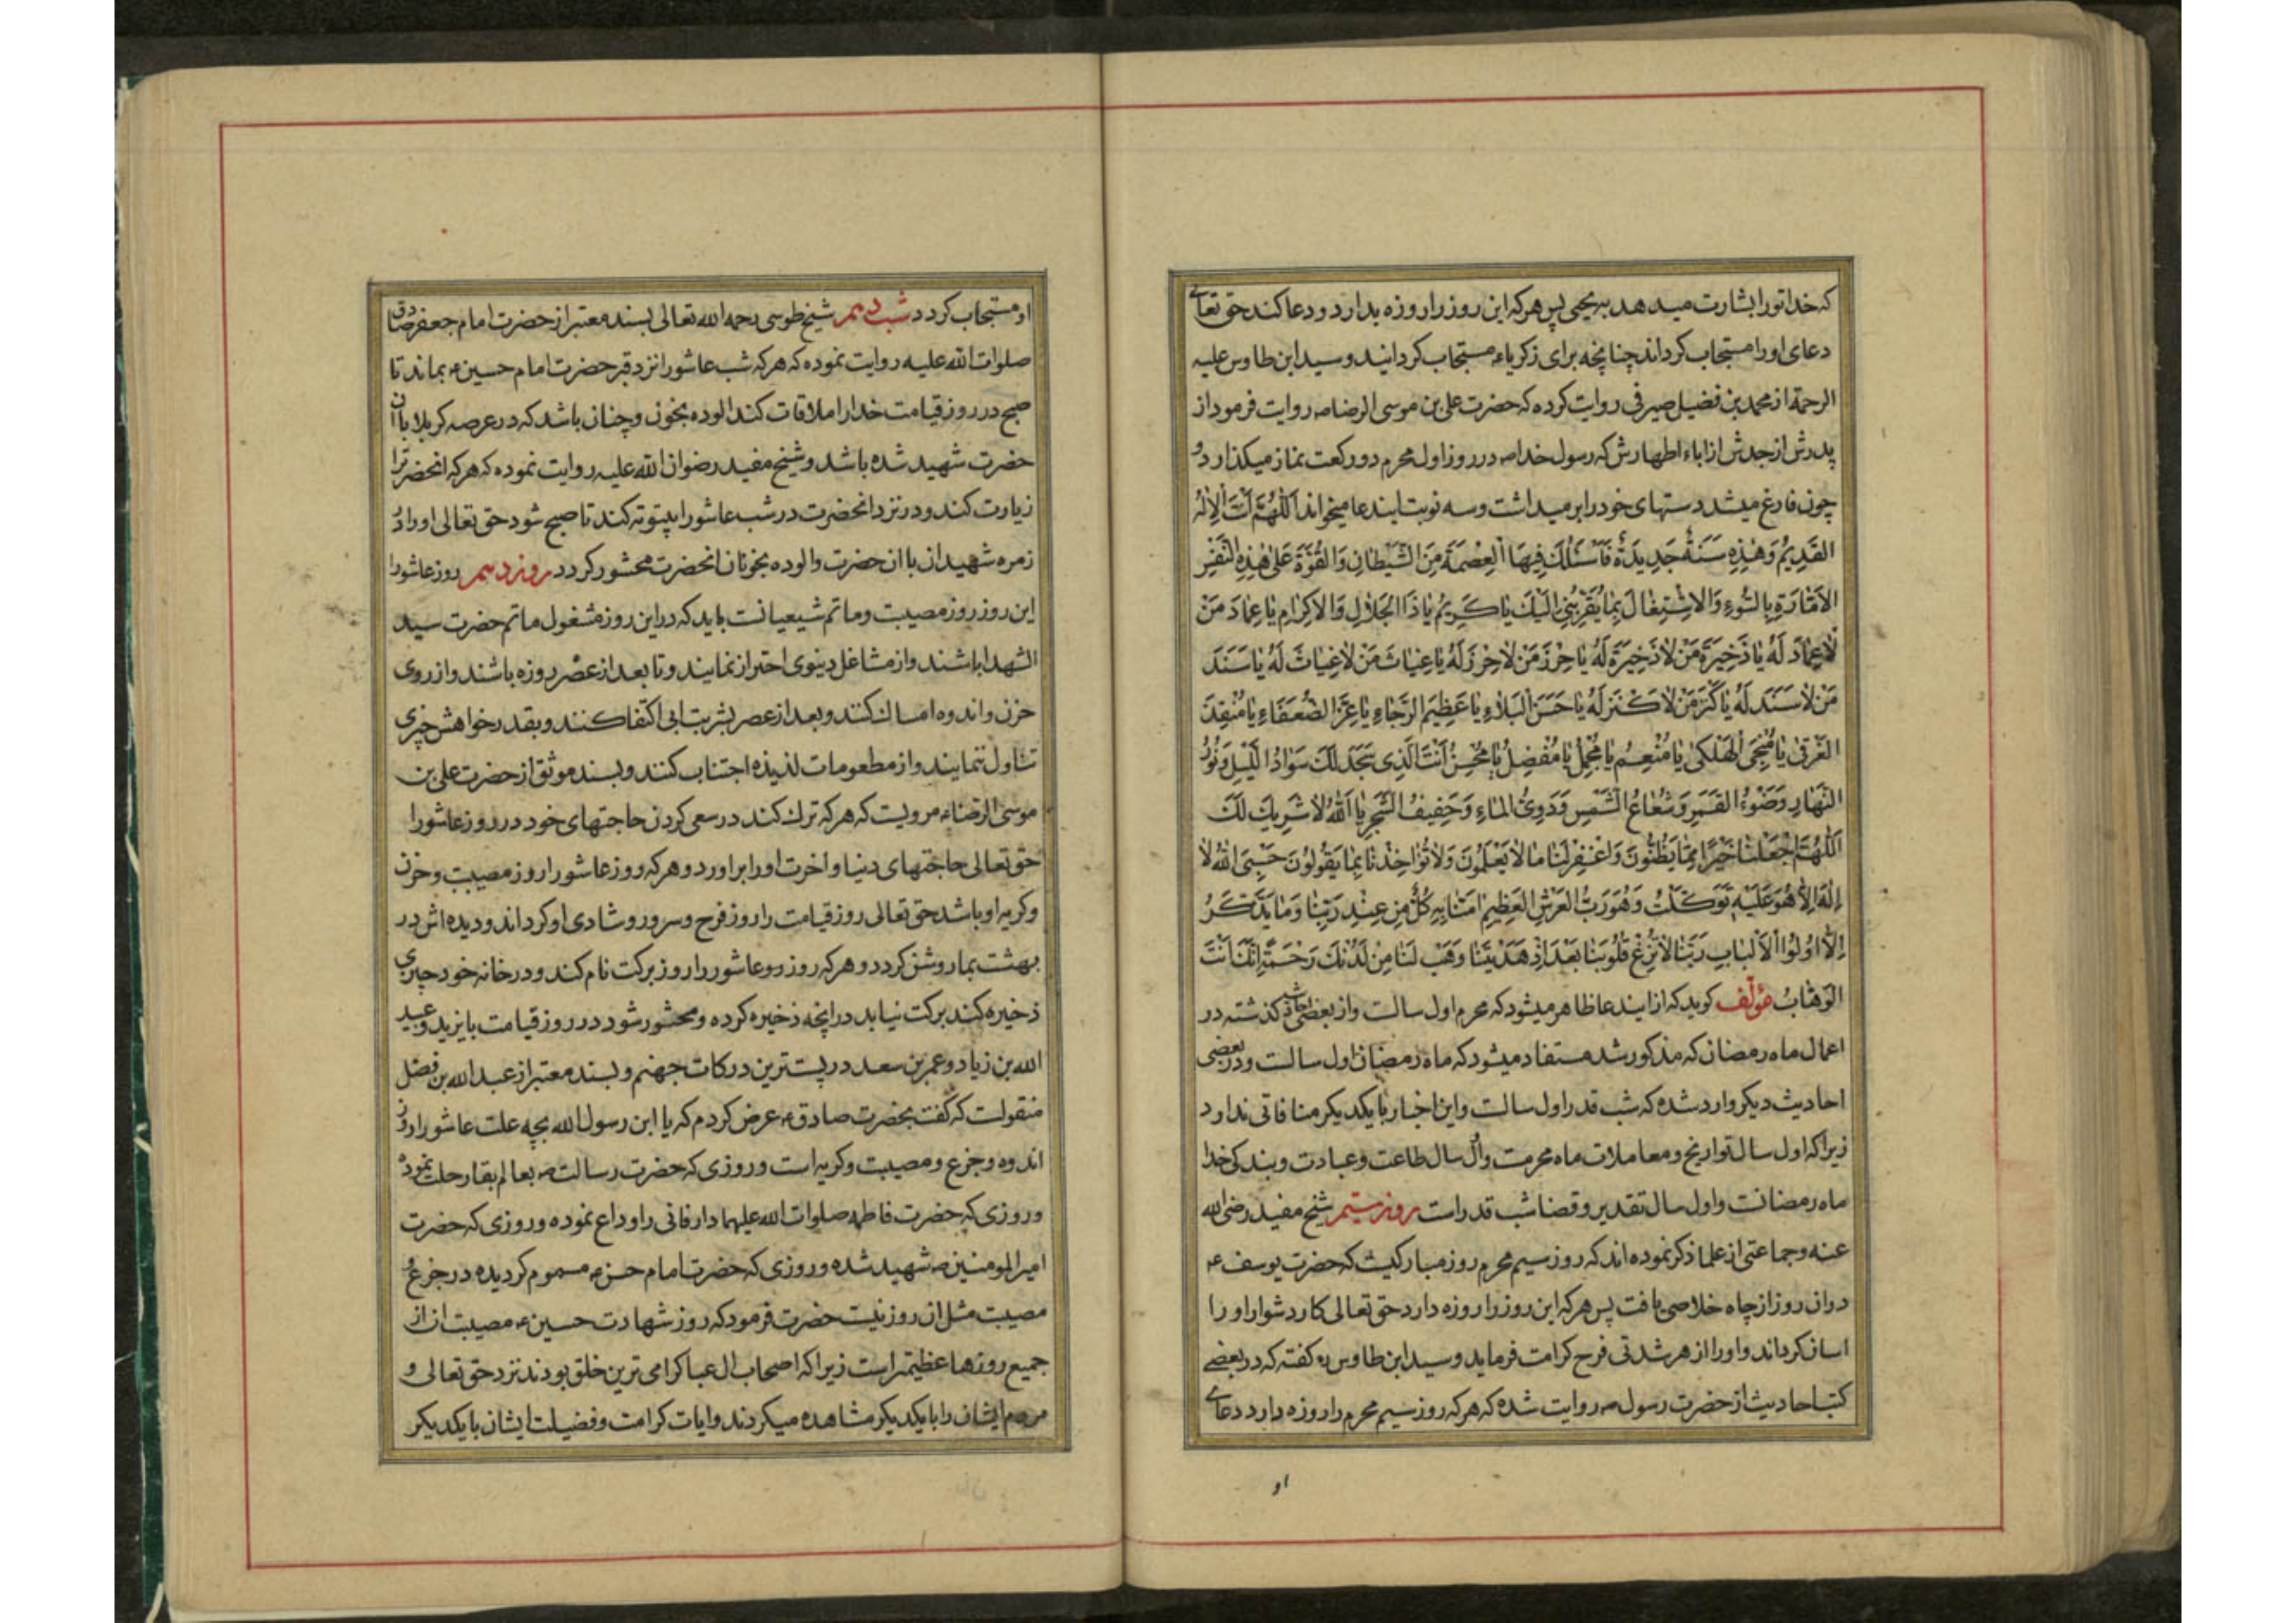 که خدا تو را بشارت میدهد به یحیی پس هر که این روز را روزه بدارد و دعا کند حق تعالی
دعای او را مستجاب کرداند چنانچه برای زکریاء مستجاب کردانید و سید ابن طاوس علیه
الرحمة از محمد بن فضیل صیرفی روایت کرده که حضرت علی بن موسی الرضا ص روایت فرمود از
پدرش از جدش از اباء اطهارش که رسول خدا ص در روز اول محرم دو رکعت نماز میکذارد و
چون فارغ میشد دستهای خود را بر میداشت و سه نوبت ایندعا میخواند اَللّٰهُمَّ اَنْتَ الْاِلٰهُ
القَدِیْمُ وَهٰذِهِ سَنَةٌ جَدِیدَةٌ فَاَسْئَلُكَ فِیهَا الْعِصْمَةَ مِنَ الشَّیْطٰانِ وَالقُوَّةَ عَلٰی هٰذِهِ النَّفْسِ
الاَمّٰارَةِ بِالسُّوءِ وَالاِشْتِغٰالَ بِمٰا یُقَرِّبُنِی اِلَیْكَ یٰا کَرِیْمُ یٰا ذَا الجَلٰالِ وَالاِکرٰامِ یٰا عِمٰادَ مَنْ
لٰا عِمٰادَ لَهُ یٰا ذَخِیْرَةَ مَنْ لٰا ذَخِیْرَةَ لَهُ یٰا حِرْزَ مَنْ لٰا حِرْزَ لَهُ یٰا غِیٰاثَ مَنْ لٰا غِیٰاثَ لَهُ یٰا سَنَدَ
مَنْ لٰا سَنَدَ لَهُ یٰا کَنْزَ مَنْ لٰا کَنْزَ لَهُ یٰا حَسَنَ الْبَلٰاءِ یٰا عَظِیْمَ الرَّجٰاءِ یٰا عِزَّ الضُّعَفٰاءِ یٰا مُنْقِذَ
الغَرْقٰی یٰا مُنْجِیَ الْهَلْکٰی یٰا مُنْعِمُ یٰا مُجْمِلُ یٰا مُفْضِلُ یٰا مُحْسِنُ اَنْتَ الَّذِی سَجَدَ لَكَ سَوٰادُ اللَّیْلِ وَنُوْرُ
النَّهٰارِ وَضَوْءُ القَمَرِ وَشُعٰاعُ الشَّمْسِ وَدَوِیُّ المٰاءِ وَحَفِیفُ الشَّجَرِ یٰا اَللّٰهُ لٰا شَرِیكَ لَكَ
اَللّٰهُمَّ اجْعَلْنٰا خَیْرًا مِمّٰا یَظُنُّونَ وَاغْفِرْ لَنٰا مٰا لٰا یَعْلَمُونَ وَلٰا تُؤٰاخِذْنٰا بِمٰا یَقُولُونَ حَسْبِیَ اللّٰهُ لٰا
اِلٰهَ اِلّٰا هُوَ عَلَیْهِ تَوَکَّلْتُ وَهُوَ رَبُّ العَرْشِ العَظِیْمِ اٰمَنّٰا بِهِ کُلٌّ مِنْ عِنْدِ رَبِّنٰا وَمٰا یَذَّکَّرُ
اِلّٰا اُولُوا الْاَلْبٰابِ رَبَّنٰا لٰا تُزِغْ قُلُوبَنٰا بَعْدَ اِذْ هَدَیْتَنٰا وَهَبْ لَنٰا مِنْ لَدُنْكَ رَحْمَةً اِنَّكَ اَنْتَ
الوَهّٰابُ مؤلّف کوید که از ایندعا ظاهر میشود که محرم اول سالست و از بعضی احادیث کذشته در
اعمال ماه رمضان که مذکور شد مستفاد میشود که ماه رمضان اول سالست و در بعضی
احادیث دیکر وارد شده که شب قدر اول سالست و این اخبار با یکدیکر منافاتی ندارد
زیرا که اول سال تواریخ و معاملات ماه محرمست و اول سال طاعت و عبادت و بندکی خدا
ماه رمضانست و اول سال تقدیر و قضا شب قدر است روز سیّم شیخ مفید رضی الله
عنه و جماعتی از علما ذکر نموده اند که روز سیم محرم روز مبارکیست که حضرت یوسف ع
در ان روز از چاه خلاصی یافت پس هر که این روز را روزه دارد حق تعالی کار دشوار او را
اسان کرداند و او را از هر شدتی فرح کرامت فرماید و سید ابن طاوس ره کفته که در بعضے
کتب احادیث از حضرت رسول ص روایت شده که هر که روز سیم محرم را روزه دارد دعاے
او
او مستجاب کردد شب دهم شیخ طوسی رحمه الله تعالی بسند معتبر از حضرت امام جعفر صادق
صلوات الله علیه روایت نموده که هر که شب عاشورا نزد قبر حضرت امام حسین ع بماند تا
صبح در روز قیامت خدا را ملاقات کند الوده بخون و چنان باشد که در عرصه کربلا با ان
حضرت شهید شده باشد و شیخ مفید رضوان الله علیه روایت نموده که هر که انحضرت را
زیارت کند و در نزد انحضرت در شب عاشورا بیتوته کند تا صبح شود حق تعالی او را در
زمره شهیدان با ان حضرت و الوده بخونان انحضرت محشور کردد روز دهم روز عاشورا
این روز روز مصیبت و ماتم شیعیانست باید که در این روز مشغول ماتم حضرت سید
الشهدا باشند و از مشاغل دینوی احتراز نمایند و تا بعد از عصر روزه باشند و از روی
حزن و اندوه امساك کنند و بعد از عصر بشربت ابی اکتفا کنند و بقدر خواهش چیزی
تناول ننمایند و از مطعومات لذیذه اجتناب کنند و بسند موثق از حضرت علی بن
موسی الرضاء مرویست که هر که ترك کند در سعی کردن حاجتهای خود در روز عاشورا
حق تعالی حاجتهای دنیا و اخرت او را بر اورد و هر که روز عاشورا روز مصیبت و حزن
و کریه او باشد حق تعالی روز قیامت را روز فرح و سرور و شادی او کرداند و دیده اش در
بهشت بما روشن کردد و هر که روز عاشورا روز برکت نام کند و در خانه خود چیزی
ذخیره کند برکت نیابد در انچه ذخیره کرده و محشور شود در روز قیامت با یزید و عبید
الله بن زیاد و عمر بن سعد در پست ترین درکات جهنم و بسند معتبر از عبد الله بن فضل
منقولست که کفت بحضرت صادق ع عرض کردم که یا ابن رسول الله بچه علت عاشورا روز
اندوه و جزع و مصیبت و کریه است و روزی که حضرت رسالت ص بعالم بقا رحلت نموده
و روزی که حضرت فاطمه صلوات الله علیهما دار فانی را وداع نموده و روزی که حضرت
امیر المومنین ص شهید شده و روزی که حضرت امام حسن ع مسموم کردیده در جزع و
مصیبت مثل ان روز نیست حضرت فرمود که روز شهادت حسین ع مصیبت ان از
جمیع روزها عظیمتر است زیرا که اصحاب ال عبا کرامی ترین خلق بودند نزد حق تعالی و
مردم ایشان را با یکدیکر مشاهده میکردند و ایات کرامت و فضیلت ایشان با یکدیکر